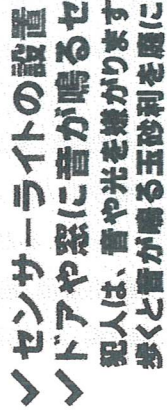 ✓センサーライトの設置
✓ドアや窓に音が鳴るセ
犯人は、音や光を嫌がります
歩くと音が鳴る玉砂利を庭に